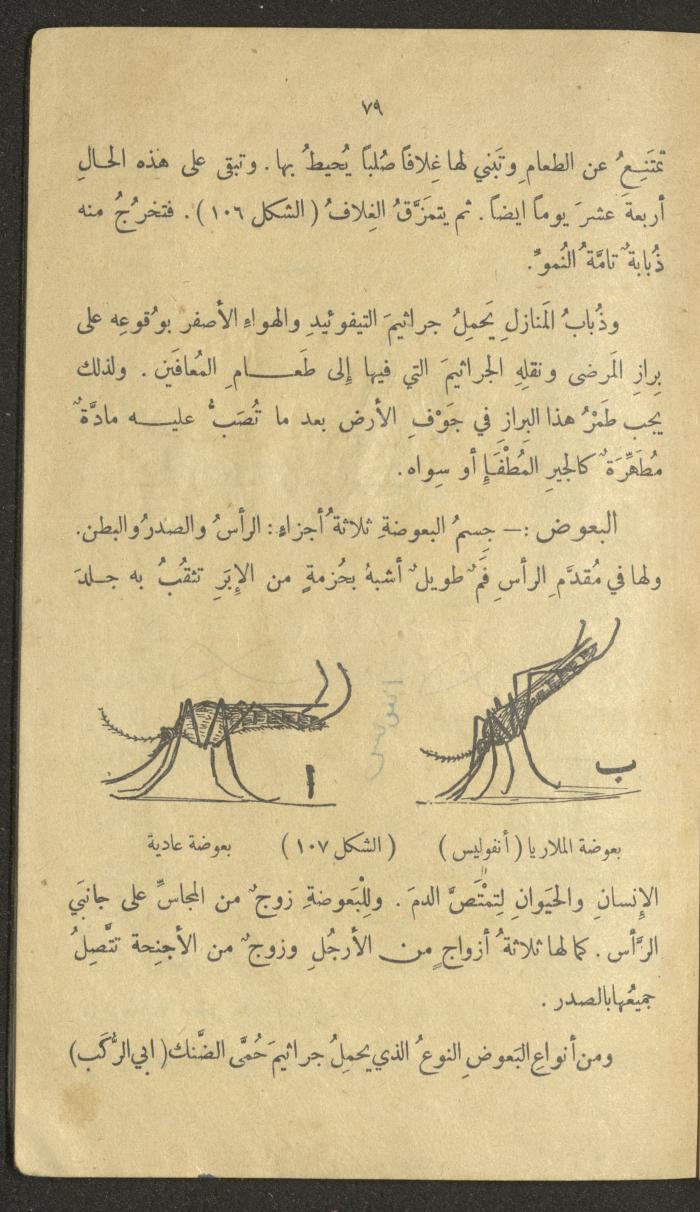 ٧٩
تمتَنِعُ عن الطعامِ وتَبني لها غِلافاً صُلباً يُحيطُ بها. وتبقى على هذه الحالِ
أربعةَ عشرَ يوماً ايضاً. ثم يتمَزَّقُ الغِلافُ (الشكل ١٠٦). فتخرُجُ منه
ذُبابةٌ تامَّةُ النُموِّ.
وذُبابُ المَنازلِ يَحمِلُ جراثيمَ التيفوئيدِ والهواءِ الأصفر بوُقوعِه على
بِرازِ المَرضى ونقلِهِ الجراثيمَ التي فيها إلى طَعـــامِ المُعافَين. ولذلك
يجب طَمْرُ هذا البِرازِ في جَوْفِ الأرض بعد ما تُصَبُّ عليــه مادَّةٌ
مُطَهِّرَةٌ كالجيرِ المُطْفَإِ أو سِواه.
البعوض :— جِسمُ البعوضةِ ثلاثةُ أجزاءٍ: الرأسُ والصدرُ والبطن.
ولها في مُقدَّمِ الرأسِ فَمٌ طويلٌ أشبهُ بحُزمةٍ من الإبَرِ تثقُبُ به جـلدَ
ب
ا
بعوضة الملاريا (أنفوليس) (الشكل ١٠٧) بعوضة عادية
الإنسانِ والحَيَوانِ لِتمْتَصَّ الدمَ. وللْبَعوضةِ زوجٌ من المجاسِّ على جانبَي
الرَّأس. كما لها ثلاثةُ أزواجٍ من الأرجُلِ وزوجٌ من الأجنِحة تتَّصِلُ
جميعُها بالصدر.
ومن أنواعِ البَعوضِ النوعُ الذي يحمِلُ جراثيمَ حُمَّى الضَّنك (ابي الرُّكَب)